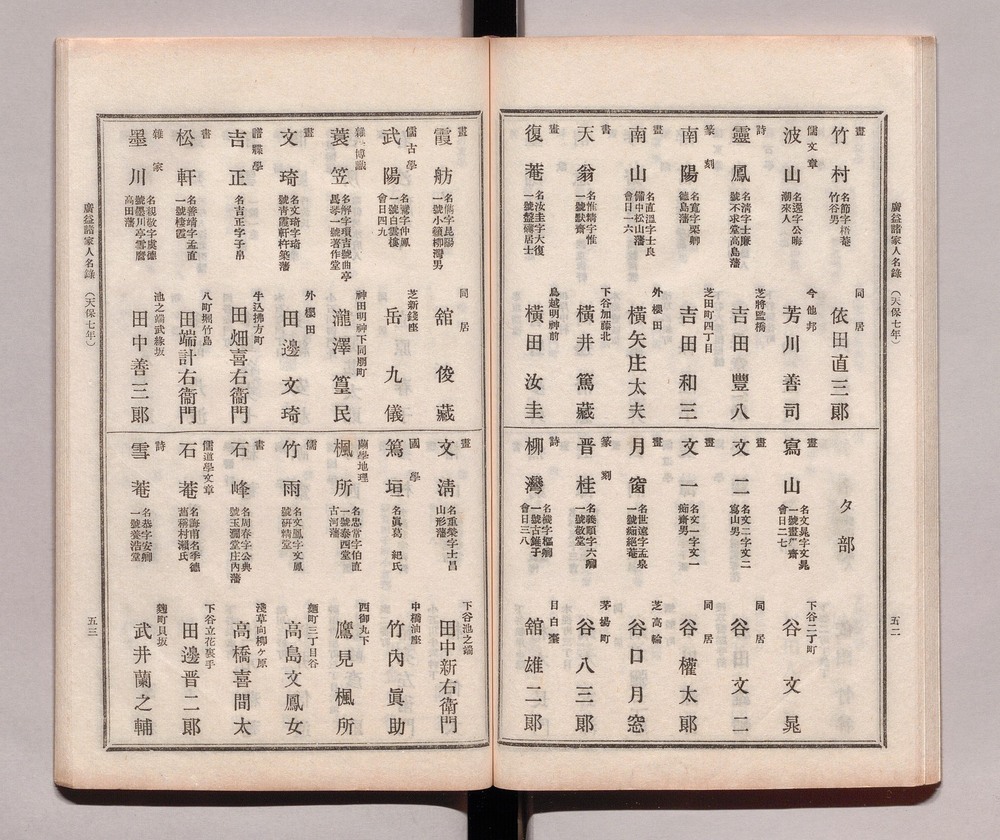 廣益諸家人名錄（天保七年）
五二
畫 竹村 名節字梧菴 竹谷男 同居 依田直三郞
儒文章 波山 名遜字公晦 潮來人 今他邦 芳川善司
詩 靈鳳 名濤字士廉 號不求堂高島藩 芝將監橋 吉田豐八
篆刻 南陽 名寬字栗卿 德島藩 芝田町四丁目 吉田和三
畫 南山 名直溫字士良 備中松山藩 會日一六 外櫻田 橫矢庄太夫
書 天翁 名惟精字惟 一號默齋 下谷加藤北 橫井篤藏
畫 復菴 名汝圭字大復 一號盤礴居士 鳥越明神前 橫田汝圭
タ部
畫 寫山 名文晁字文晁 一號畫學齋 會日二七 下谷二丁町 谷文晁
畫 文二 名文二字文二 寫山男 同居 谷文二
畫 文一 名文一字文一 癡齋男 同居 谷權太郞
畫 月窗 名世遠字孟泉 一號癡絕菴 芝高輪 谷口月窓
篆刻 晋桂 名義順字六卿 一號敬堂 茅場町 谷八三郞
詩 柳灣 名機字樞卿 一號古錐子 會日三八 目白臺 舘雄二郞
畫 霞舫 名儁字昆陽 一號小積柳灣男 同居 舘俊藏
儒古學 武陽 名鷺字仲鳳 一號白雲樓 會日四九 芝新錢座 岳九儀
雜博識 蓑笠 名解字瑣吉號曲亭 馬琴一號著作堂 神田明神下同朋町 瀧澤篁民
畫 文琦 名文琦字琦 號青霞軒杵築藩 外櫻田 田邊文琦
譜牒學 吉正 名吉正字子帛 牛込拂方町 田畑喜右衞門
書 松軒 名善靖字孟直 一號棲霞 八町堀竹島 田端計右衞門
雜家 墨川 名親敬字虞德 號墨川亭雪麿 高田藩 池之端武緣坂 田中善三郞
畫 文淸 名重榮字士昌 山形藩 下谷池之端 田中新右衞門
國學 篶垣 名眞葛 紀氏 中橋油座 竹內眞助
蘭學地理 楓所 名忠常字伯直 一號泰西堂 古河藩 西御丸下 鷹見楓所
儒 竹雨 名文鳳字文鳳 號硏精堂 麵町三丁目谷 高島文鳳女
書 石峰 名周春字公典 號玉瀾堂庄內藩 淺草向柳ヶ原 高橋喜間太
儒道學文章 石菴 名誨甫名季德 舊稱村瀨氏 下谷立花裏手 田邊晋二郞
詩 雪菴 名恭字安卿 一號養浩堂 麴町貝坂 武井蘭之輔
廣益諸家人名錄（天保七年）
五三